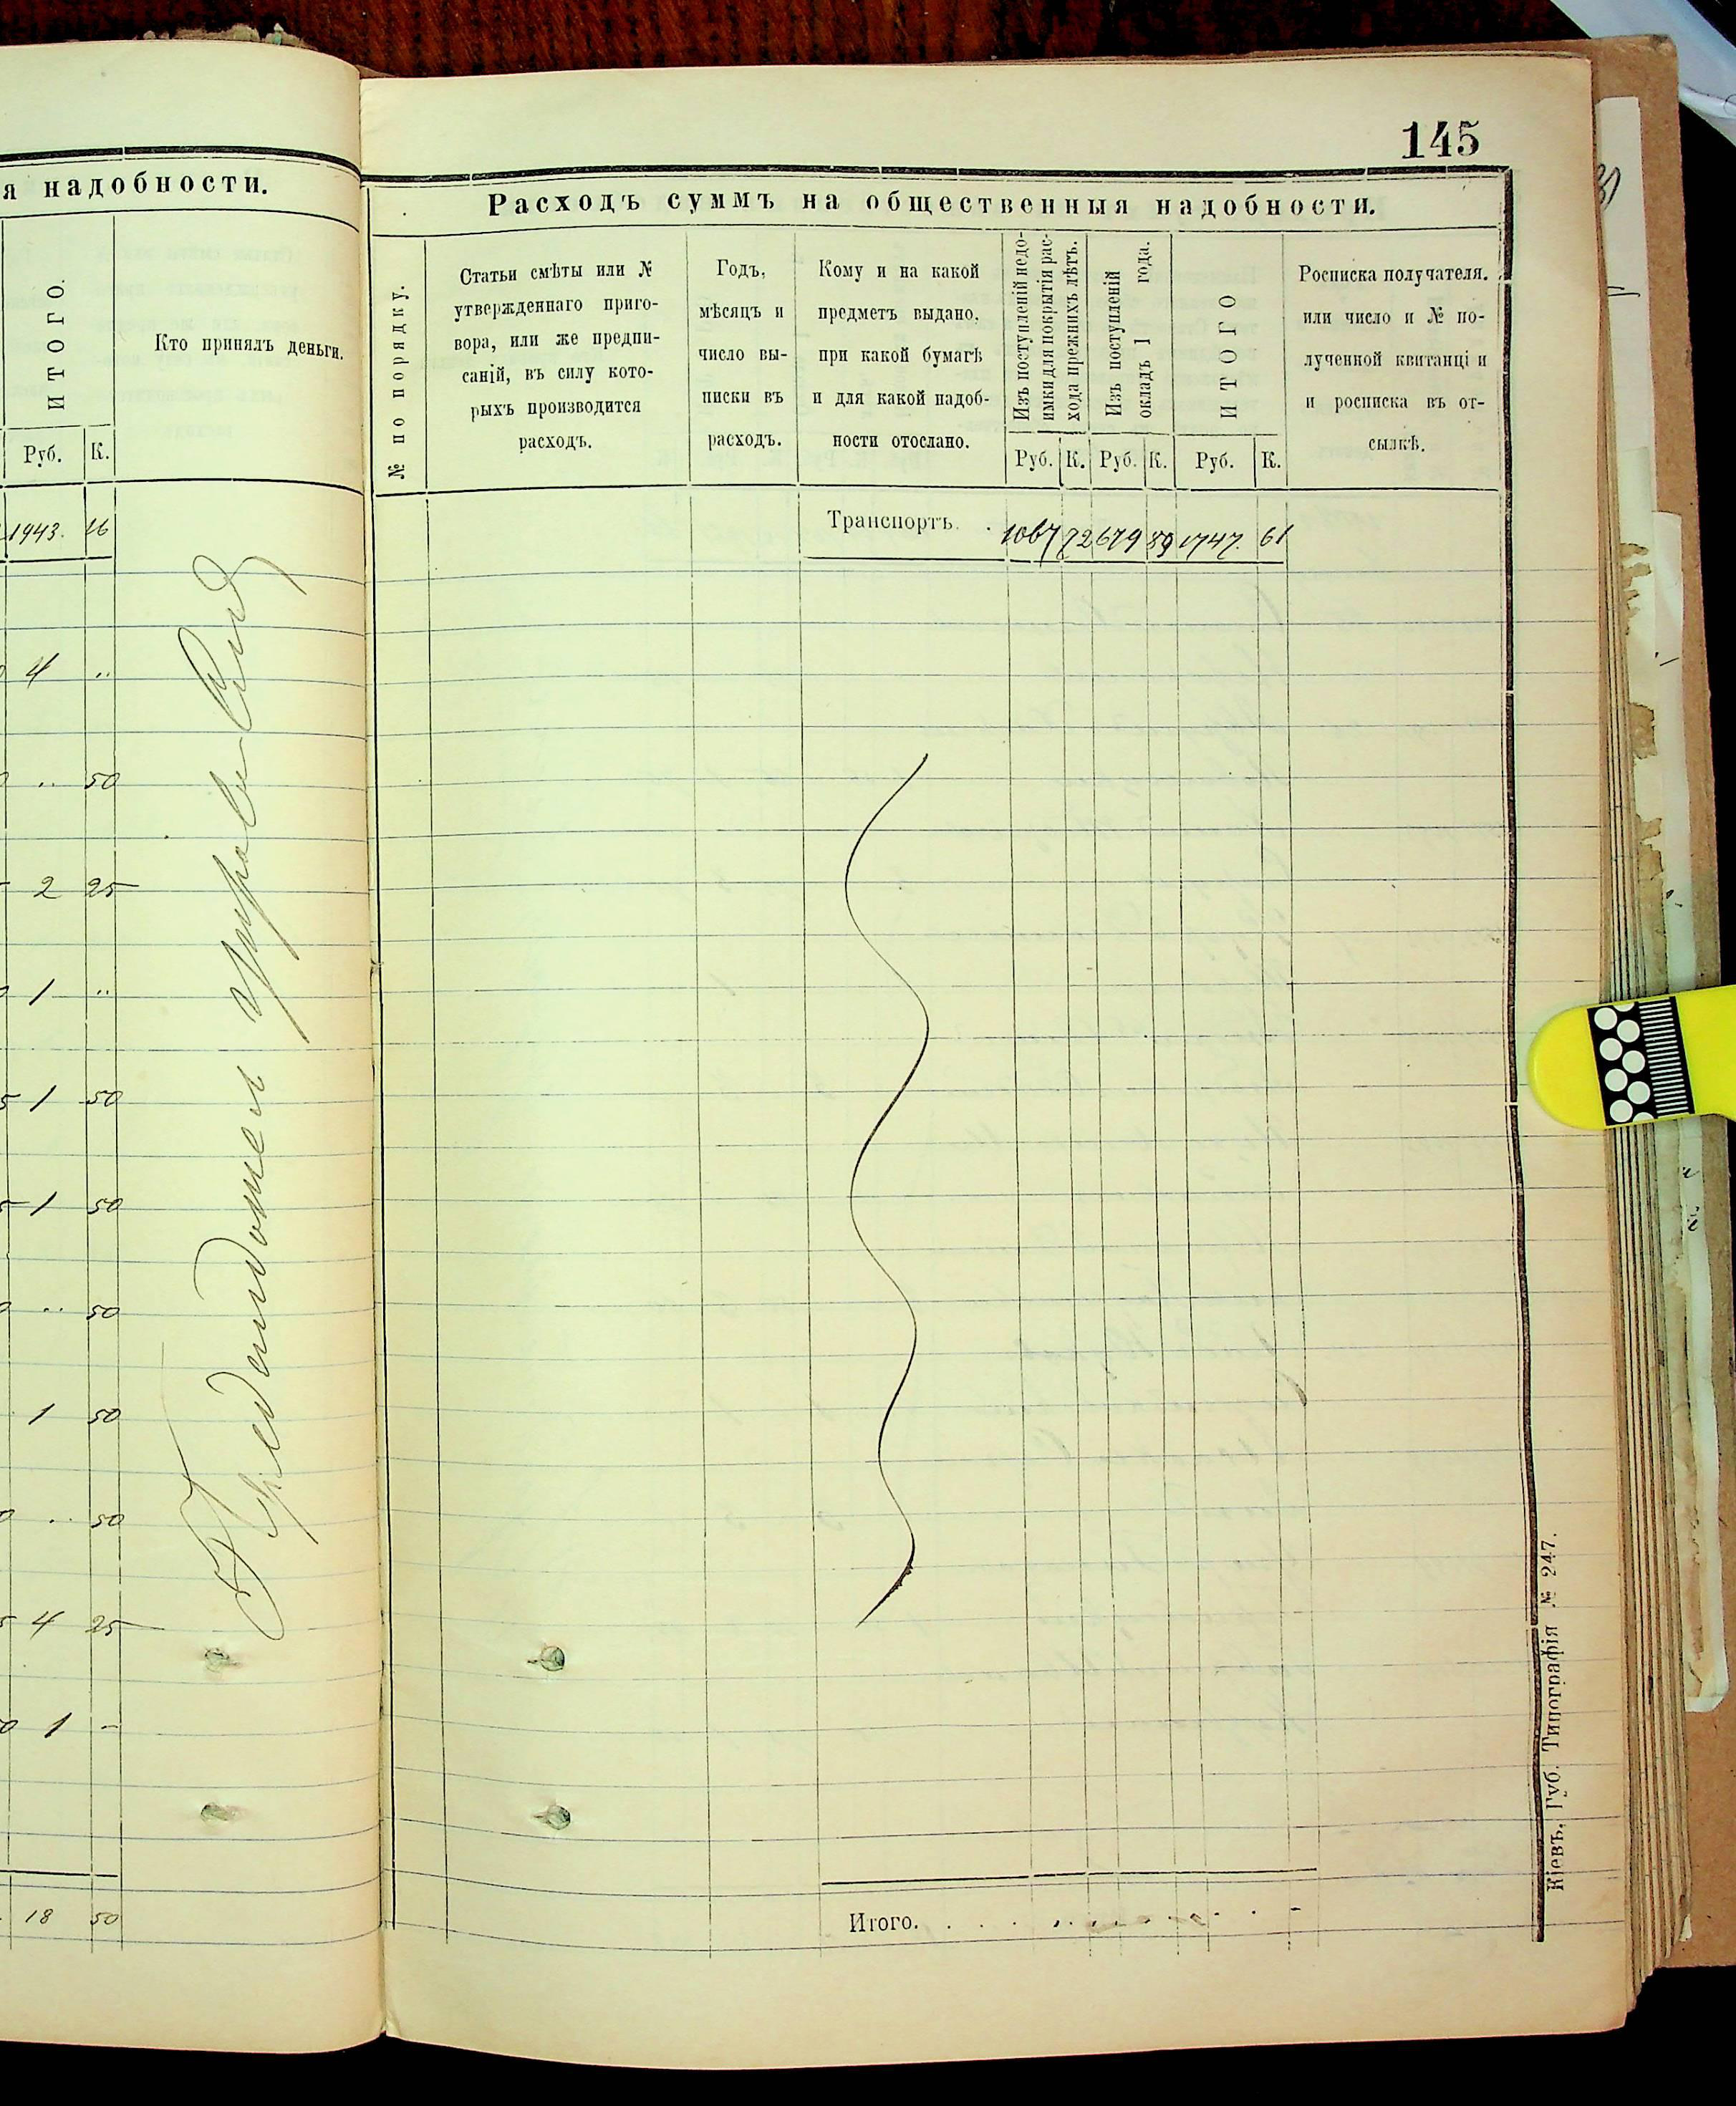 145
я надобности.
ИТОГО.
Кто принялъ деньги.
Руб. К.
1943. 16
4 ..
.. 50
2 25
1 ..
1 50
1 50
.. 50
1 50
.. 50
4 25
1 -
18 50
Расходъ суммъ на общественныя надобности.
№ по порядку.
Статьи смѣты или №
утвержденнаго приго-
вора, или же предпи-
саній, въ силу кото-
рыхъ производится
расходъ.
Годъ,
мѣсяцъ и
число вы-
писки въ
расходъ.
Кому и на какой
предметъ выдано,
при какой бумагѣ
и для какой надоб-
ности отослано.
Изъ поступленій недо-
имки для покрытія рас-
хода прежнихъ лѣтъ.
Изъ поступленій
окладъ 1 года.
ИТОГО
Росписка получателя.
или число и № по-
лученной квитанціи
и росписка въ от-
сылкѣ.
Руб. К. Руб. К. Руб. К.
Транспортъ. 1067 72 679 89 1747. 61
Итого.
Кіевъ, Губ. Типографія № 247.